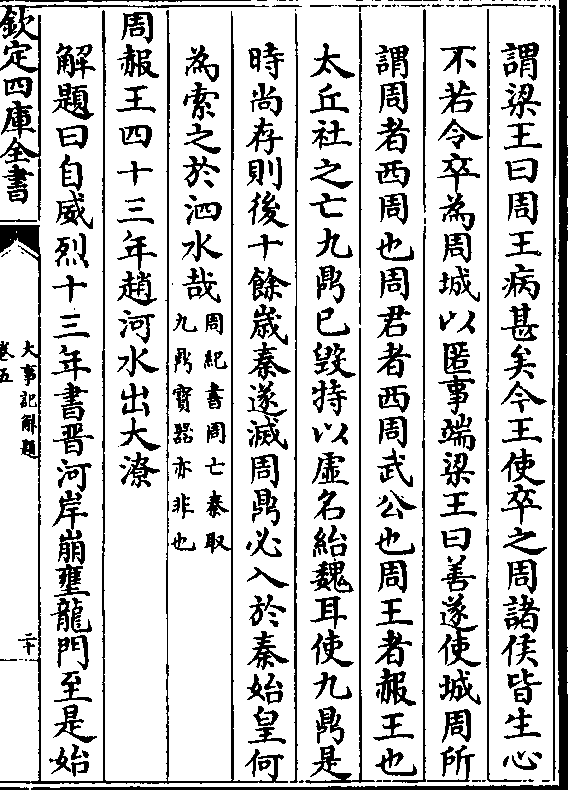 謂梁王曰周王病甚矣今王使卒之周諸侯皆生心
不若令卒為周城以匿事端梁王曰善遂使城周所
謂周者西周也周君者西周武公也周王者赧王也
太丘社之亡九鼎已毀特以虛名紿魏耳使九鼎是
時尚存則後十餘歲秦遂滅周鼎必入於秦始皇何
為索之於泗水哉周紀書周亡秦取九鼎寶器亦非也
周赧王四十三年趙河水出大潦
解題曰自威烈十三年書晋河岸崩壅龍門至是始
欽定四庫全書
大事記解題
卷五
二十